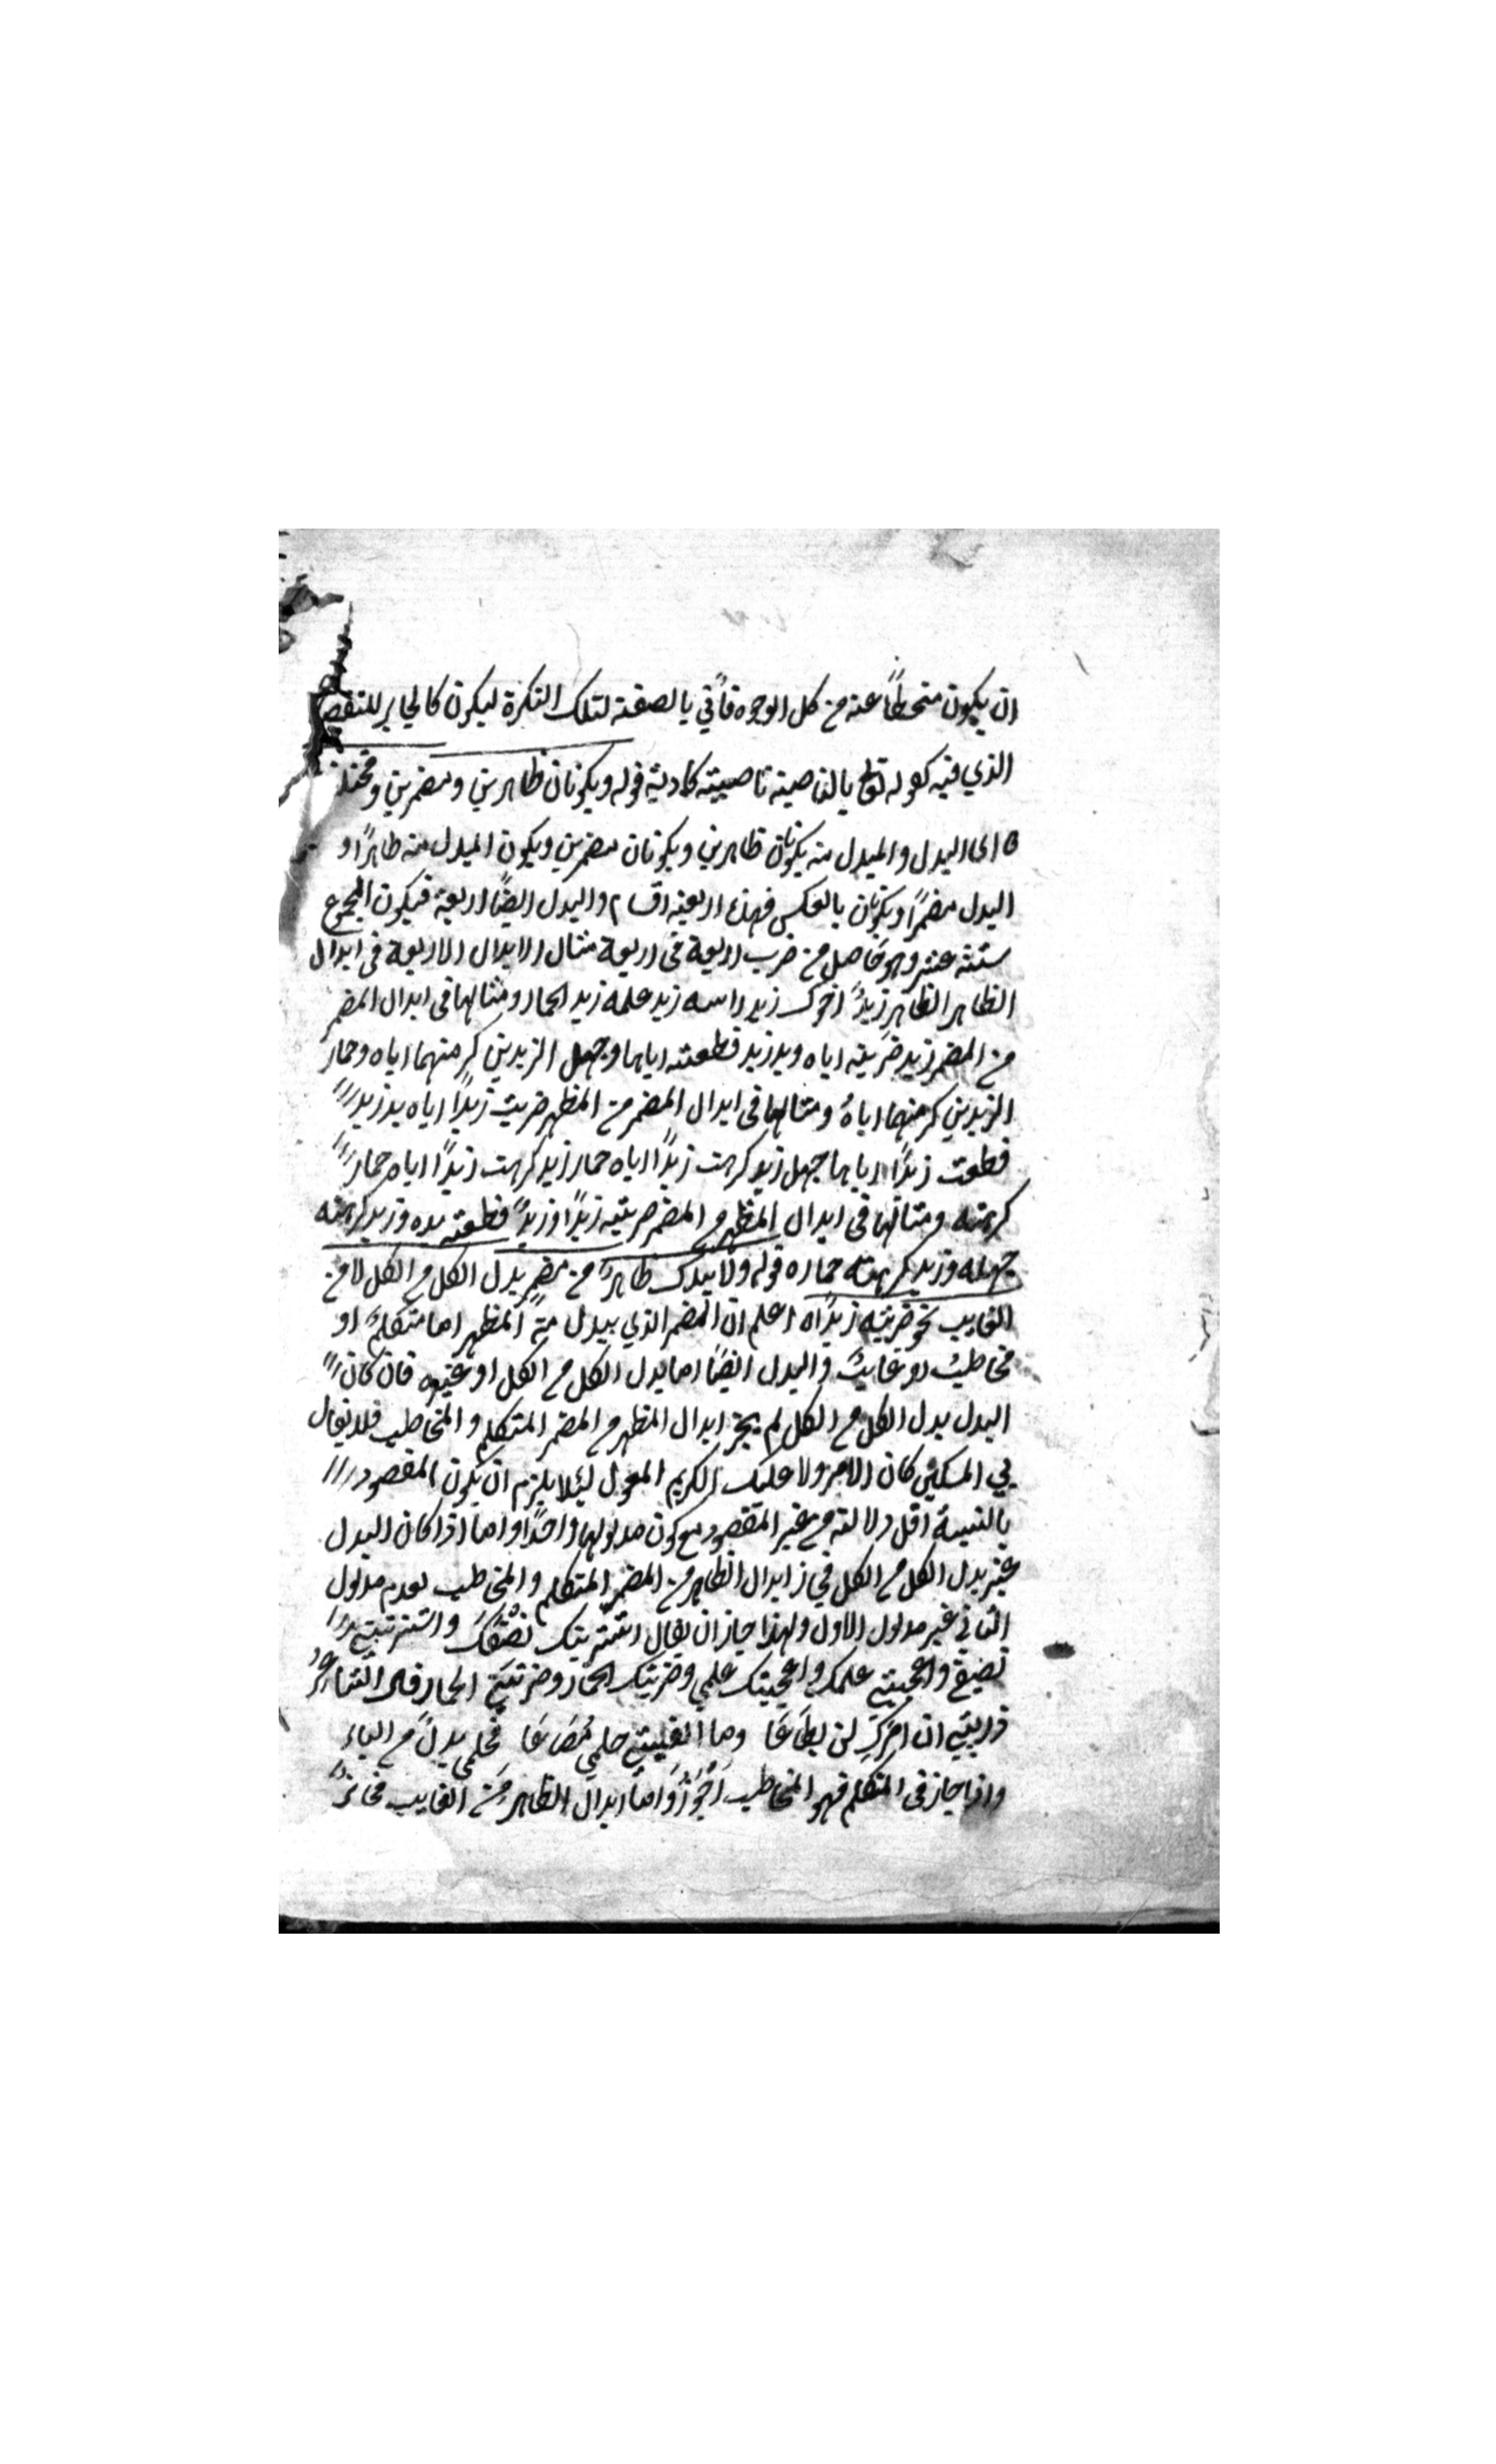 ان يكون منحطاً عنه من كل الوجوه فأتي بالصفة لتلك النكرة ليكون كالجابر للنقص
الذي فيه كقوله تع بالناصية ناصية كاذبة قوله ويكونان ظاهرين ومضمرين ومختلفين
اى البدل والمبدل منه يكونان ظاهرين ويكونان مضمرين ويكون المبدل منه ظاهرًا و
البدل مضمرًا ويكونان بالعكس فهذه اربعة اقسام والبدل ايضًا اربعة فيكون المجموع
ستة عشر وهو حاصل من ضرب اربعة فى اربعة مثال الابدال الاربعة فى ابدال
الظاهر الظاهر زيدٌ اخوك زيد راسه زيد علمه زيد الحمار ومثالها فى ابدال المضمر
من المضمر زيد ضربته اياه ويد زيد قطعته اياها وجهل الزيدين كرهتهما اياه وحمار
الزيدين كرهتهما اياهُ ومثالها فى ابدال المضمر من المظهر ضربت زيدًا اياه يد زيد
قطعت زيدًا اياها جهل زيد كرهت زيدًا اياه حمار زيد كرهت زيدًا اياه حمار
كرهته ومثالها فى ابدال المظهر من المضمر ضربته زيدًا وزيدٌ قطعته يده وزيد كرهته
جهله وزيد كرهته حماره قوله ولا يبدل ظاهرٌ من مضمر بدل الكل من الكل الا من
الغايب نحو ضربته زيدًا اه اعلم ان المضمر الذي يبدل منه المظهر اما متكلمٌ او
مخاطبٌ او غايبٌ والبدل ايضًا اما بدل الكل من الكل او غيره فان كان
البدل بدل الكل من الكل لم يجز ابدال المظهر من المضمر المتكلم والمخاطب فلا يقال
بي المسكين كان الامر ولا عليك الكريم المعول لئلا يلزم ان يكون المقصود
بالنسبة اقل دلالة من غير المقصود مع كون مدلولهما واحدًا واما اذا كان البدل
غير بدل الكل من الكل فجاز ابدال الظاهر من المضمر المتكلم والمخاطب لعدم مدلول
الثاني غير مدلول الاول ولهذا جاز ان يقال اشتريتك نصفك واشتريتني
نصفي واعجبتني علمك واعجبتك علمي وضربتك الحمار وضربتني الحمار قال الشاعرُ
ذريني ان امركِ لن يطاعَا وما الفيتني حلمي مُضَاعَا فحلمي بدلٌ من الياء
واذا جاز فى المتكلم فهو المخاطب اَجْوَزُ وَاما ابدال الظاهر من الغايب فجائز